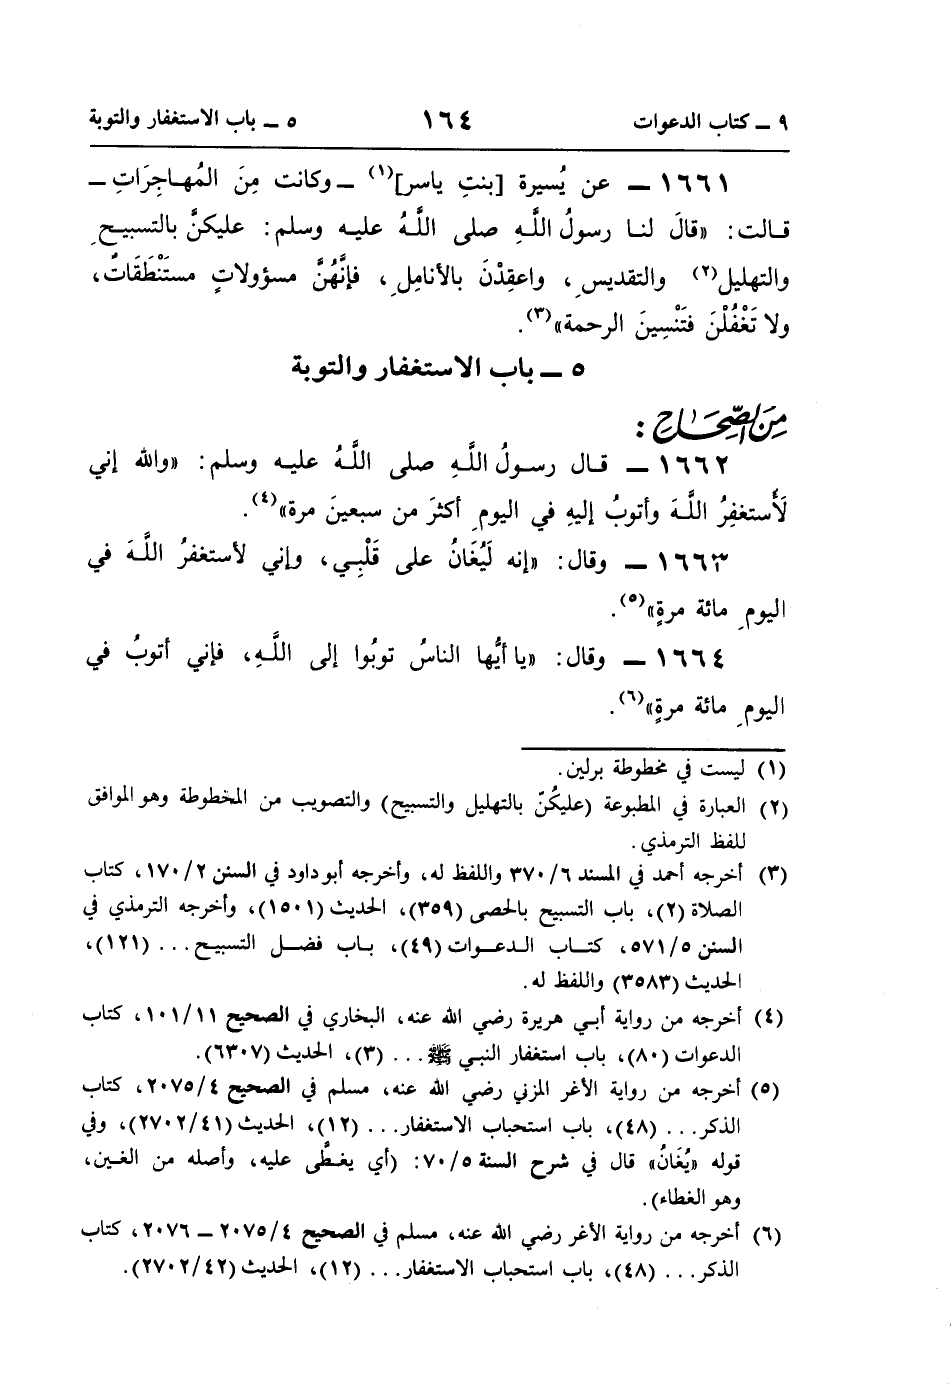 ٩ ــ كتاب الدعوات ١٦٤ ٥ ــ باب الاستغفار والتوبة
١٦٦١ ــ عن يُسيرة [بنتِ ياسر](١) ــ وكانت مِنَ المُهاجِرَاتِ ــ
قالت: «قالَ لنا رسولُ اللَّهِ صلى اللَّهُ عليه وسلم: عليكنَّ بالتسبيحِ
والتهليل(٢) والتقديسِ، واعقِدْنَ بالأنامِلِ، فإنَّهُنَّ مسؤولاتٍ مستَنْطَقَاتٌ،
ولا تَغْفُلْنَ فتَنْسِينَ الرحمة»(٣).
٥ ــ باب الاستغفار والتوبة
مِنَ الصِّحَاحِ :
١٦٦٢ ــ قال رسولُ اللَّهِ صلى اللَّهُ عليه وسلم: «والله إني
لَأَستغفِرُ اللَّهَ وأتوبُ إليهِ في اليومِ أكثرَ من سبعينَ مرة»(٤).
١٦٦٣ ــ وقال: «إنه لَيُغَانُ على قَلْبِي، وإني لأستغفرُ اللَّهَ في
اليومِ مائة مرةٍ»(٥).
١٦٦٤ ــ وقال: «يا أيُّها الناسُ توبُوا إلى اللَّهِ، فإني أتوبُ في
اليومِ مائة مرةٍ»(٦).
(١) ليست في مخطوطة برلين.
(٢) العبارة في المطبوعة (عليكُنّ بالتهليل والتسبيح) والتصويب من المخطوطة وهو الموافق
للفظ الترمذي.
(٣) أخرجه أحمد في المسند ٣٧٠/٦ واللفظ له، وأخرجه أبو داود في السنن ١٧٠/٢، كتاب
الصلاة (٢)، باب التسبيح بالحصى (٣٥٩)، الحديث (١٥٠١)، وأخرجه الترمذي في
السنن ٥٧١/٥، كتاب الدعوات (٤٩)، باب فضل التسبيح... (١٢١)،
الحديث (٣٥٨٣) واللفظ له.
(٤) أخرجه من رواية أبي هريرة رضي الله عنه، البخاري في الصحيح ١٠١/١١، كتاب
الدعوات (٨٠)، باب استغفار النبي ﷺ... (٣)، الحديث (٦٣٠٧).
(٥) أخرجه من رواية الأغر المزني رضي الله عنه، مسلم في الصحيح ٢٠٧٥/٤، كتاب
الذكر... (٤٨)، باب استحباب الاستغفار... (١٢)، الحديث (٢٧٠٢/٤١)، وفي
قوله «يُغَانُ» قال في شرح السنة ٧٠/٥: (أي يغطَّى عليه، وأصله من الغين،
وهو الغطاء).
(٦) أخرجه من رواية الأغر رضي الله عنه، مسلم في الصحيح ٢٠٧٥/٤ ــ ٢٠٧٦، كتاب
الذكر... (٤٨)، باب استحباب الاستغفار... (١٢)، الحديث (٢٧٠٢/٤٢).